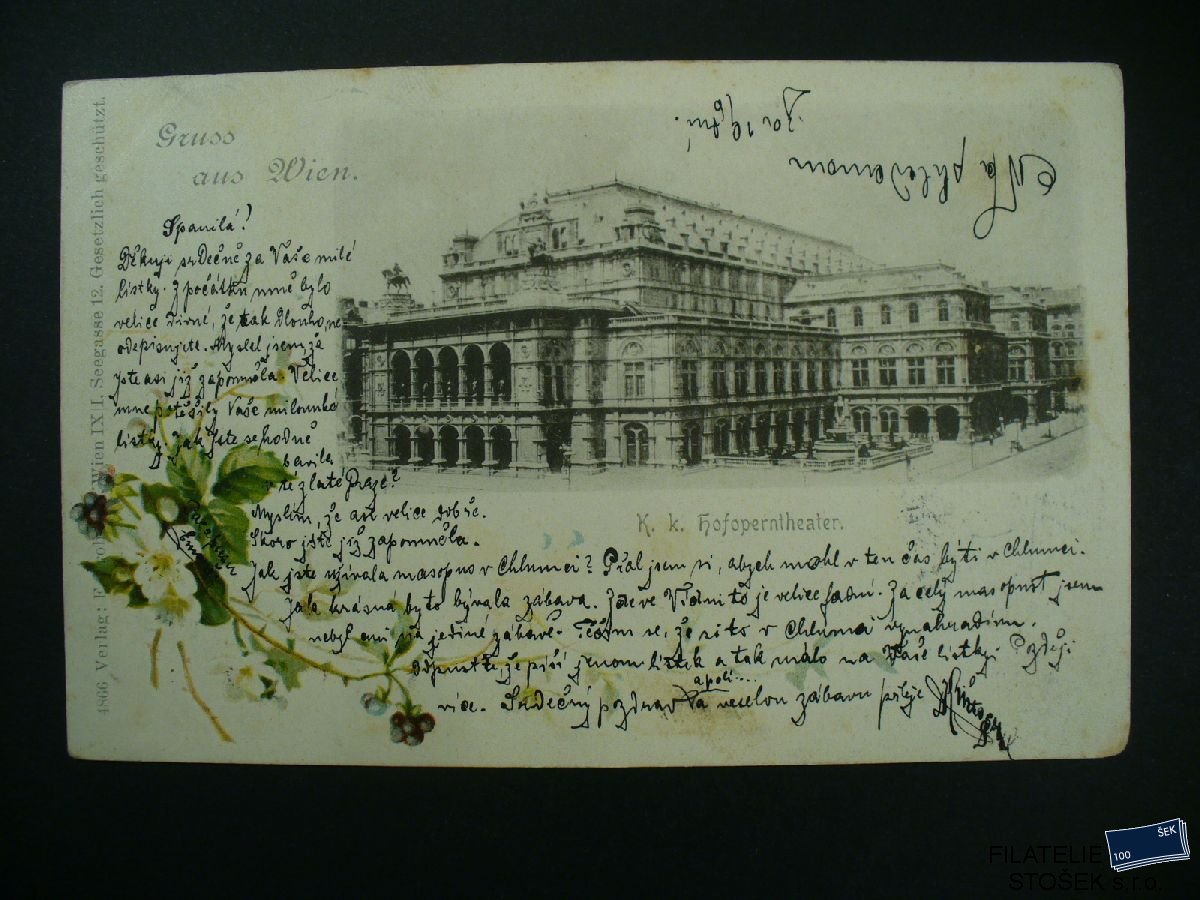 Gruss
aus Wien.
Spanilá!
Děkuji srdečně za Vaše milé
lístky. Z počátku mně bylo
velice divné, že tak dlouho ne-
odepisujete. Myslel jsem, že
jste asi již zapomněla. Velice
mne potěšily Vaše milounké
lístky. Jak jste se hodně
bavila
v té zlaté Praze?
Myslím, že asi velice dobře.
Skoro jste již zapomněla.
Jak jste užívala masopus v Chlumci? Přál jsem si, abych mohl v ten čas býti v Chlumci.
Jak krásná byto bývala zábava. Zde ve Vídni to je velice fádní. Za celý masopust jsem
nebyl ani na jediné zábavě. Těším se, že si to v Chlumci vynahradím.
Odpusťte, že píši jenom lístek a tak málo na Vaše lístky. Později
více. Srdečný pozdrav a veselou zábavu přeje
K. k. Hofoperntheater.
4866 Verlag: Wien IX.I. Seegasse 12. Gesetzlich geschützt.
FILATELIE
STOŠEK s.r.o.
100 ŠEK